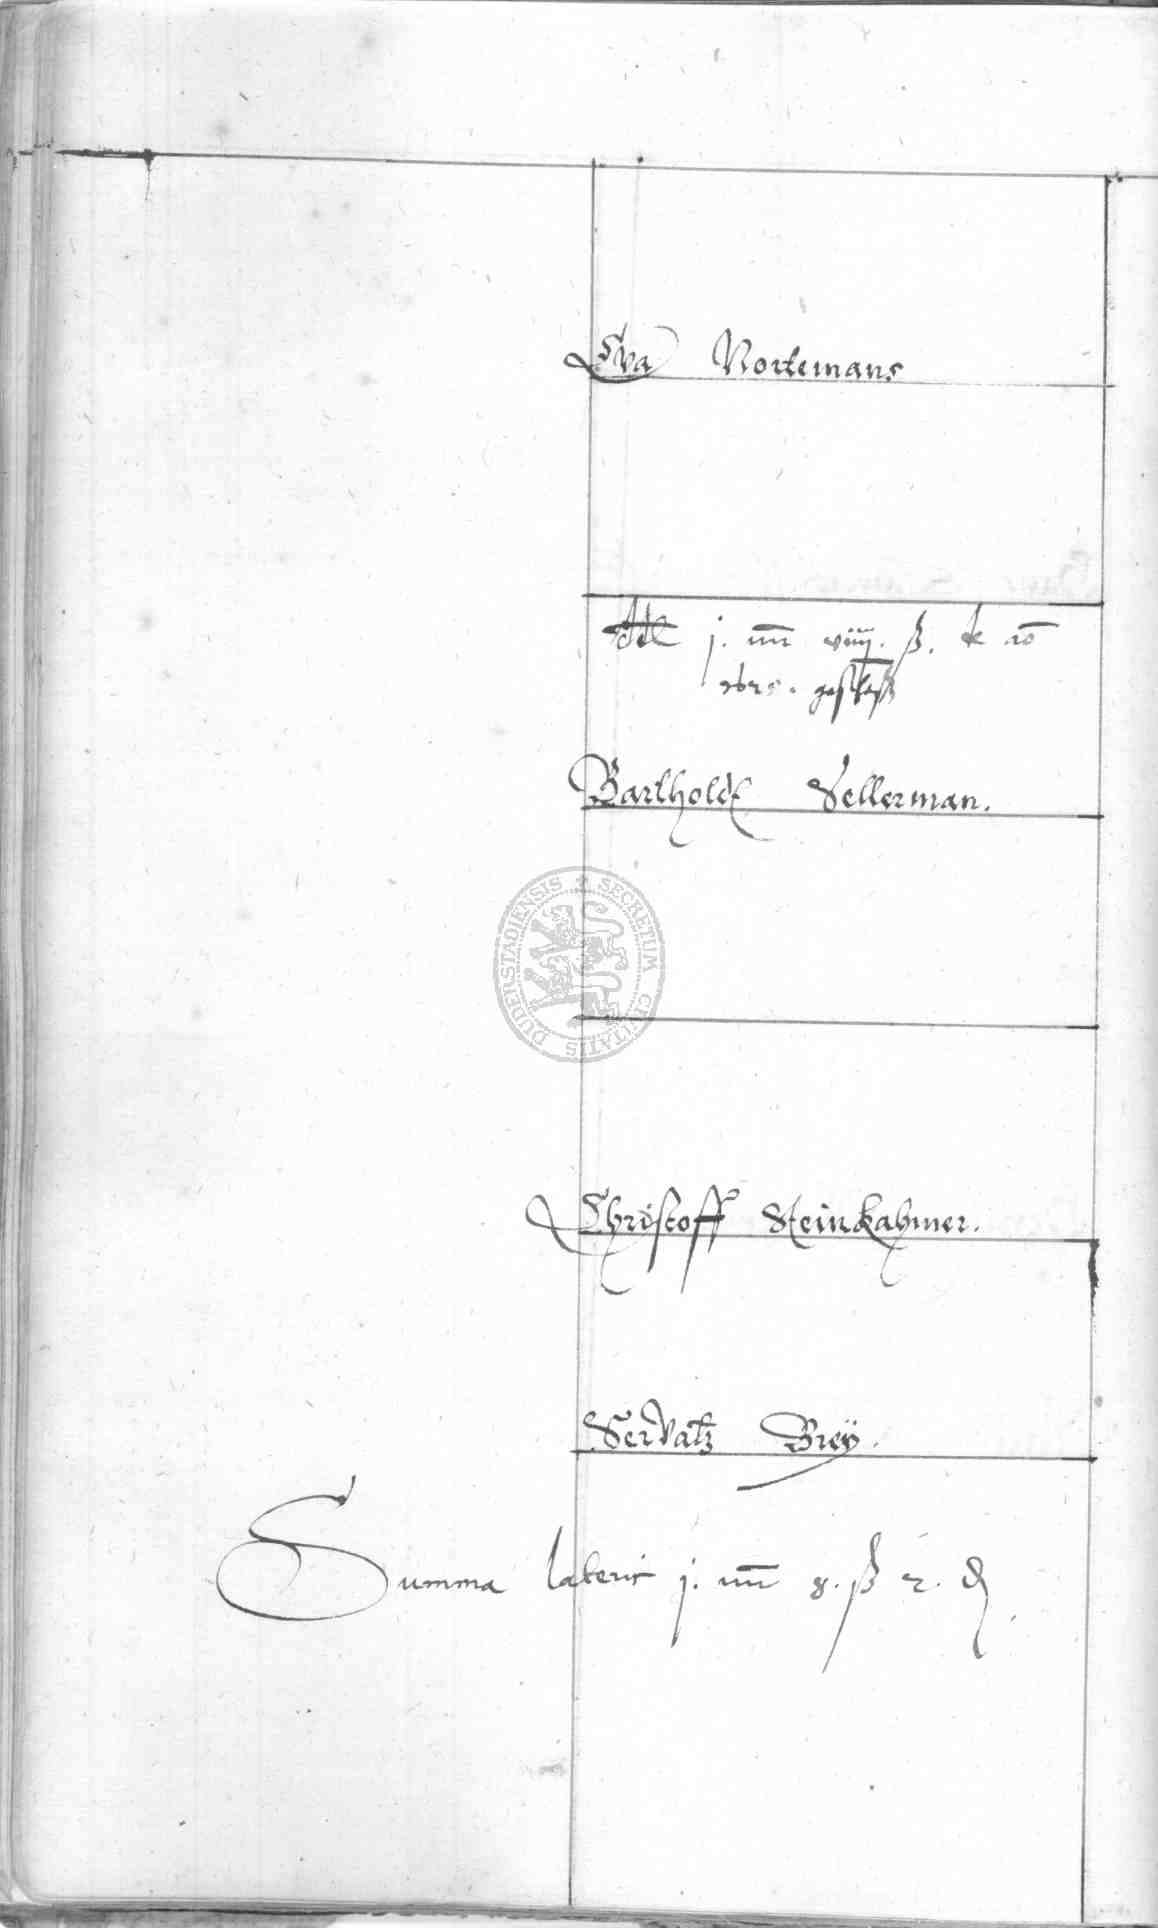 Eva Nortemans
j. mr viiij. ß. de ao
1625.
Barthold Sellerman.
SECRETUM CIVITATIS DUDERSTADIENSIS
Christoff Steinkahmer.
Servatz Breÿ.
Summa lateris j. mr 8. ß 2. ₰